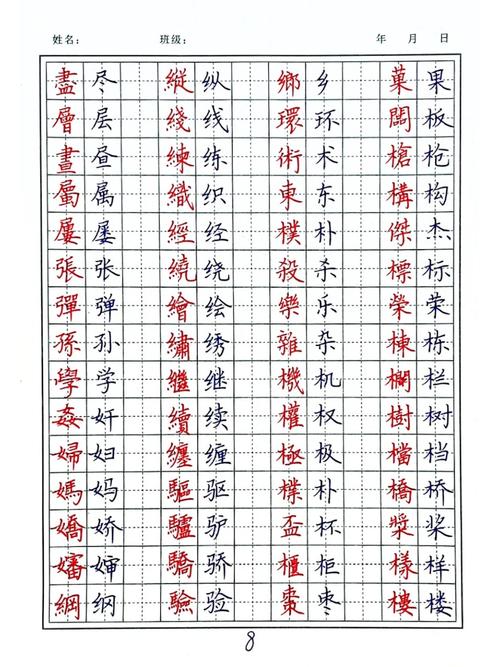 姓名： 班级： 年 月 日
盡 尽 縱 纵 鄉 乡 菓 果
層 层 綫 线 環 环 闆 板
晝 昼 練 练 術 术 槍 枪
屬 属 織 织 東 东 構 构
屢 屡 經 经 樸 朴 傑 杰
張 张 繞 绕 殺 杀 標 标
彈 弹 繪 绘 樂 乐 榮 荣
孫 孙 繡 绣 雜 杂 棟 栋
學 学 繼 继 機 机 欄 栏
姦 奸 續 续 權 权 樹 树
婦 妇 纏 缠 極 极 檔 档
媽 妈 驅 驱 樸 朴 橋 桥
嬌 娇 驢 驴 盃 杯 槳 桨
嬸 婶 驕 骄 櫃 柜 樣 样
綱 纲 驗 验 棗 枣 樓 楼
8